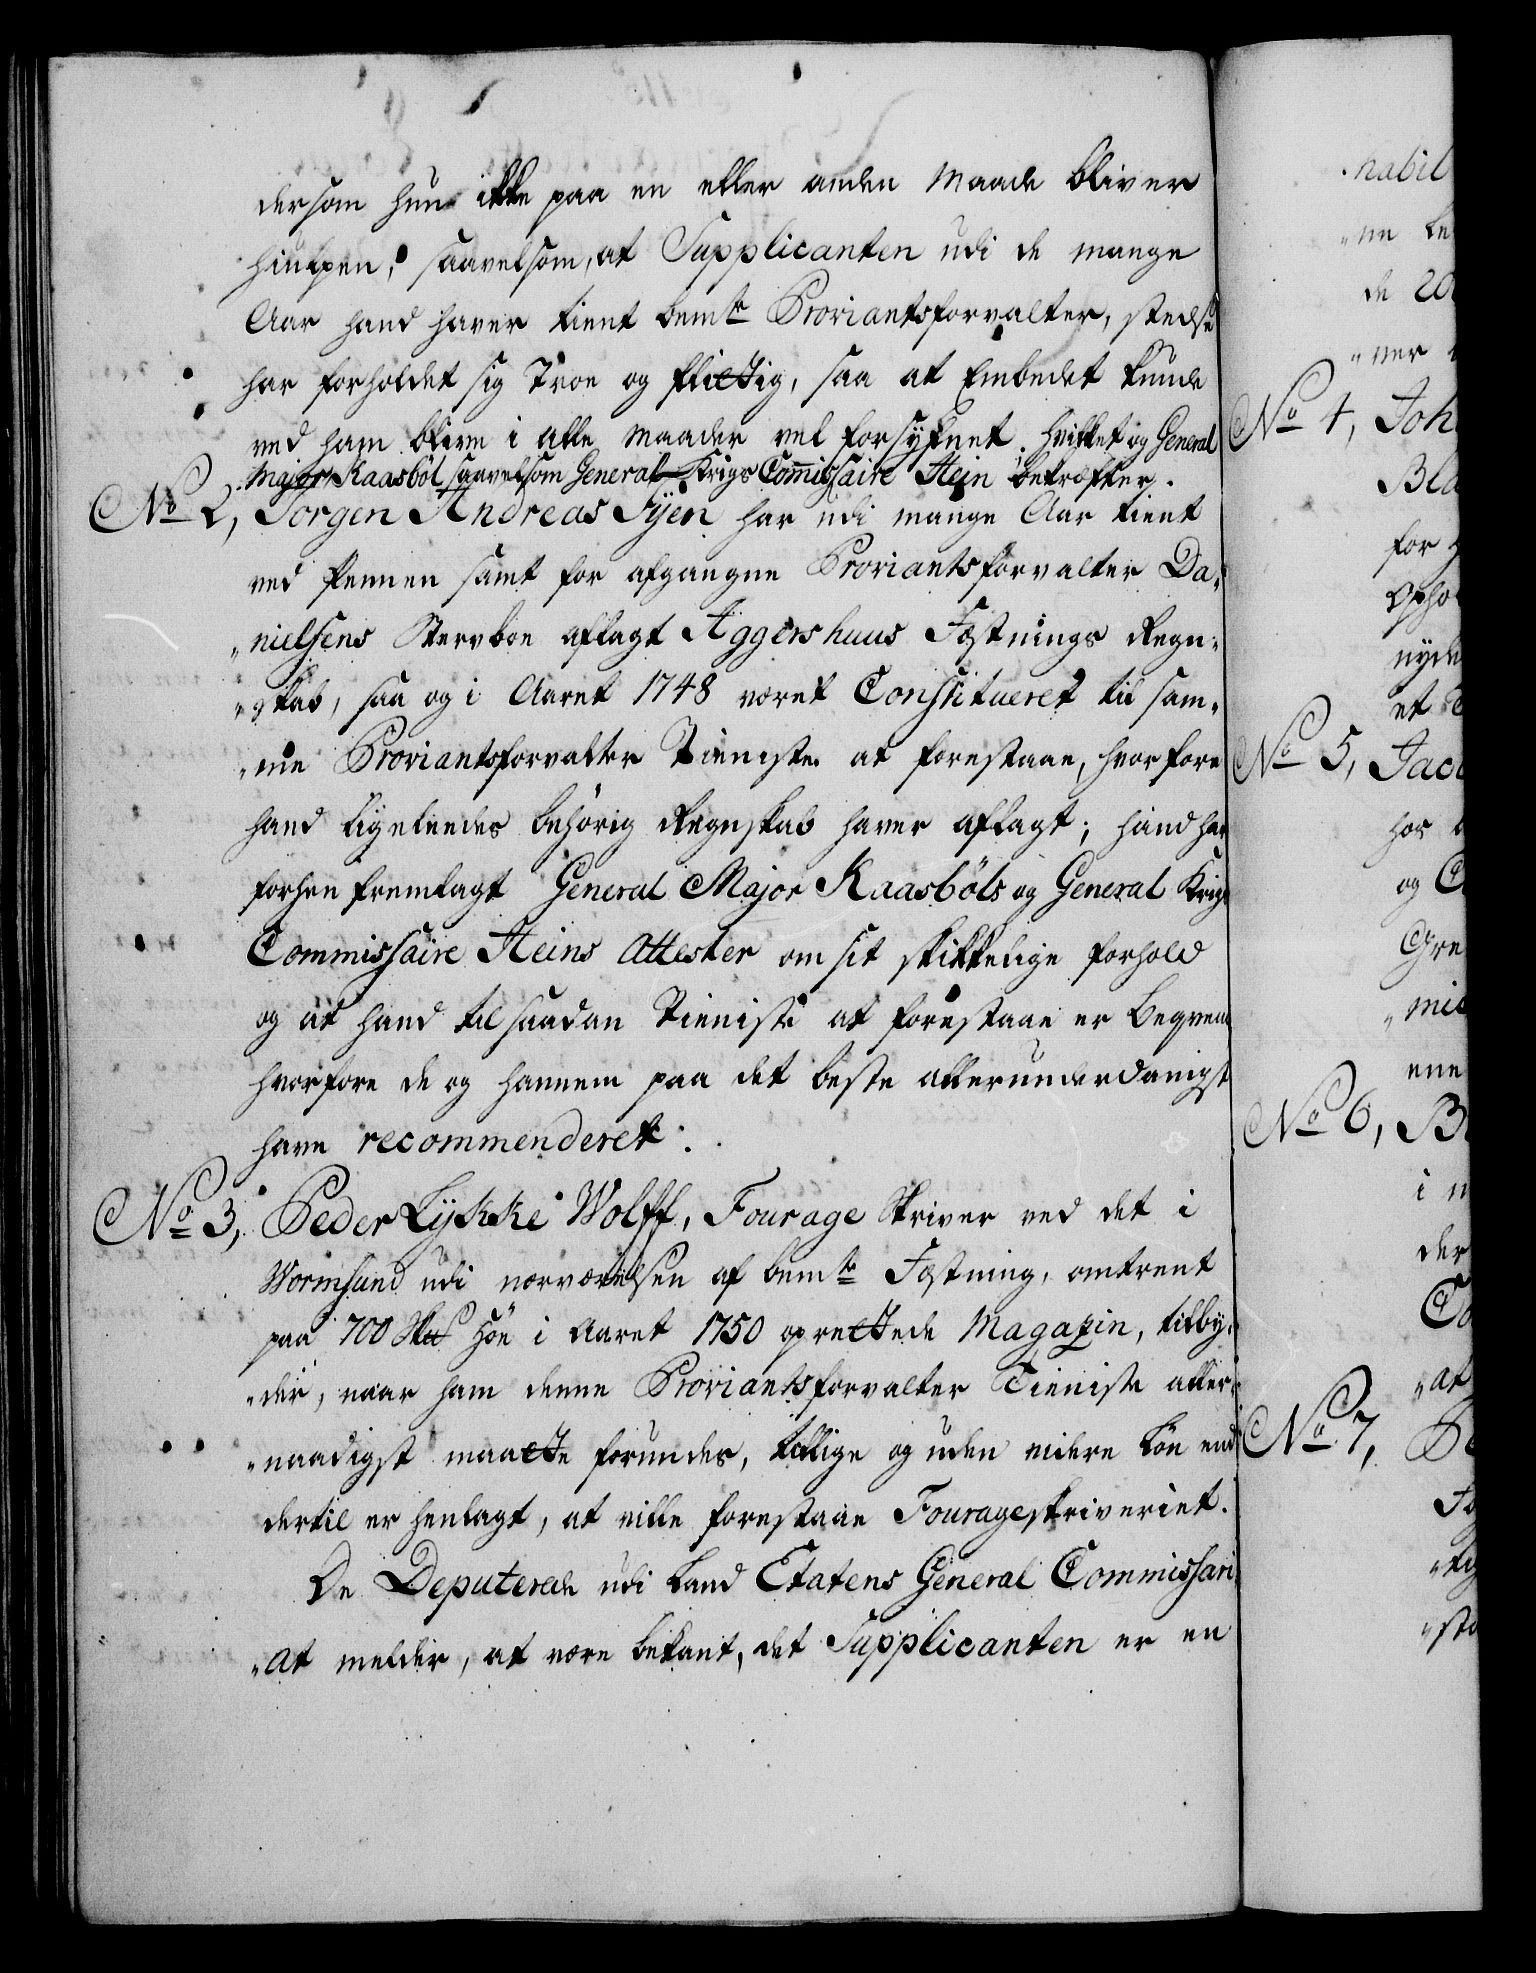 dersom hun ikke paa en eller anden Maade bliver
hiulpen, saavelsom, at Supplicanten udi de mange
Aar hand haver tient bemte Proviantsforvalter, stedse
har forholdet sig Troe og flittig, saa at Embedet kunde
ved ham blive i alle Maader vel forsyknet. hvilket og General
Major Kaasböl saavelsom General Krigs Commissaire Stein bekræfter.
No 2, Jorgen Andreas Fÿen har udi mange Aar tient
ved Pennen samt for afgangne Proviantsforvalter Da„
„nielsens Stervboe aflagt Aggershuus Fæstnings Regn„
„skab, saa og i Aaret 1748 været Constitueret til sam„
„me Proviantsforvalter Tieniste at forestaae, hvorfore
hand ligeleedes behörig Regnskab haver aflagt; hand har
forhen fremlagt General Major Kaasböls og General Krigs
Commissaire Steins Attester om sit skikkelige forhold
og at hand til saadan Tieniste at forestaae er beqvem
hvorfore de og hannem paa det beste allerunderdanigst
have recommenderet.
No 3, Peder Lykke Wolff, Fourage Skriver ved det i
Wormsund udi nærværelsen af bemte Fæstning, omtrent
paa 700 Höe i Aaret 1750 oprettede Magazin, tilby„
„der, naar ham denne Proviantsforvalter Tieniste aller„
„naadigst maatte forundes, tillige og uden videre Lön end
dertil er henlagt, at ville forestaae Fourageskriveriet.
De Deputerede udi Land Etatens General Commissari„
„at melder, at være bekant, det Supplicanten er en
nabil
de 20
No 4, Joh
Bla
for
Opho
nyde
et
No 5, Jaco
hos
og
Gre
mis
ene
No 6, B
i
der
Co
„at
No 7,